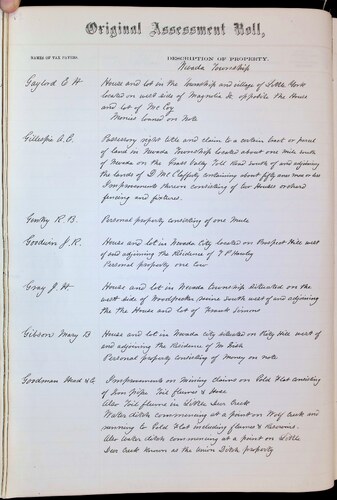 Original Assessment Roll,
NAMES OF TAX PAYERS.
DESCRIPTION OF PROPERTY.
Nevada Township
Gaylord E. H. House and lot in the Township and village of Little York
located on west side of Magnolia St. opposite the House
and lot of McCoy
Monies loaned on Note
Gillespie A. C. Possessory right title and claim to a certain tract or parcel
of land in Nevada Township located about one mile south
of Nevada on the Grass Valley Toll Road south of and adjoining
the lands of D. McClafferty containing about fifty one more or less
Improvements thereon consisting of two Houses orchard
fencing and fixtures.
R. B. Personal property consisting of one Mule
Goodwin J. R. House and lot in Nevada City located on Prospect Hill west
of and adjoining the Residence of
Personal property one Cow
Gray J. H. House and lot in Nevada Township situated on the
west side of Woodpecker ravine south west of and adjoining
the the House and lot of Frank
Gibson Mary B House and lot in Nevada city situated on Piety Hill west of
and adjoining the Residence of Mr
Personal property consisting of money on note
Goodman Head & Co Improvements on Mining claims on Gold Flat consisting
of Iron pipe Tail flumes & Hose
Also Tail flume in Little Deer Creek
Water ditch commencing at a point on Wolf Creek and
running to Gold Flat including flumes &
Also water ditch commencing at a point on Little
Deer Creek known as the Union Ditch property